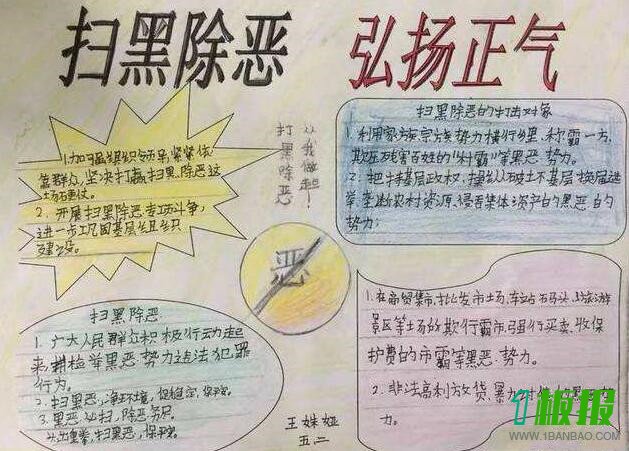 扫黑除恶 弘扬正气
1.加强组织领导,紧紧依
靠群众,坚决打赢扫黑除恶这
场硬仗。
2.开展扫黑除恶专项斗争,
进一步巩固基层党组织
建设。
打黑除恶
从我做起!
扫黑除恶的打击对象
1.利用家族宗族势力横行乡里,称霸一方,
欺压残害百姓的“村霸”等黑恶势力。
2.把持基层政权,操纵破坏基层换届选
举,垄断农村资源,侵吞集体资产的黑恶的
势力;
恶
扫黑除恶
1.广大人民群众积极行动起
来,检举黑恶势力违法犯罪
行为。
2.扫黑恶,净环境,促稳定,保平安。
3.黑恶必扫,除恶务尽。
4.出重拳,扫黑恶,保平安。
1.在商贸集市,批发市场,车站码头,旅游
景区等场的欺行霸市,强行买卖,收保
护费的市霸等黑恶势力。
2.非法高利放货,暴力
力。
王姝娅
五二
1板报
WWW.1BANBAO.COM